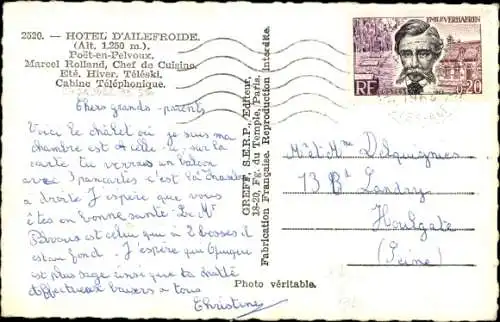 2520. — HOTEL D'AILEFROIDE.
(Alt. 1.250 m.)
Poët-en-Pelvoux.
Marcel Rolland, Chef de Cuisine
Eté. Hiver. Téléski.
Cabine Téléphonique.
Chers grands-parents
Voici le châtel où je suis ma
chambre est celle sur la
carte tu verras un balcon
avec pancartes c'est la chambre
à droite. J'espère que vous
êtes en bonne santé. Le Mt
Pelvoux est celui qui a 2 bosses il
est au fond. J'espère que
est plus sage ainsi que ta
Affectueux baisers à tous
Christine
GREFF, S.E.R.P., Editeur,
18-20, Fg. du Temple, Paris.
Fabrication Française. Reproduction interdite.
Photo véritable.
EMILE VERHAEREN
RF
0,20
Mr et Mme Delquignies
13 Bd Landry
Houlgate
(Seine)